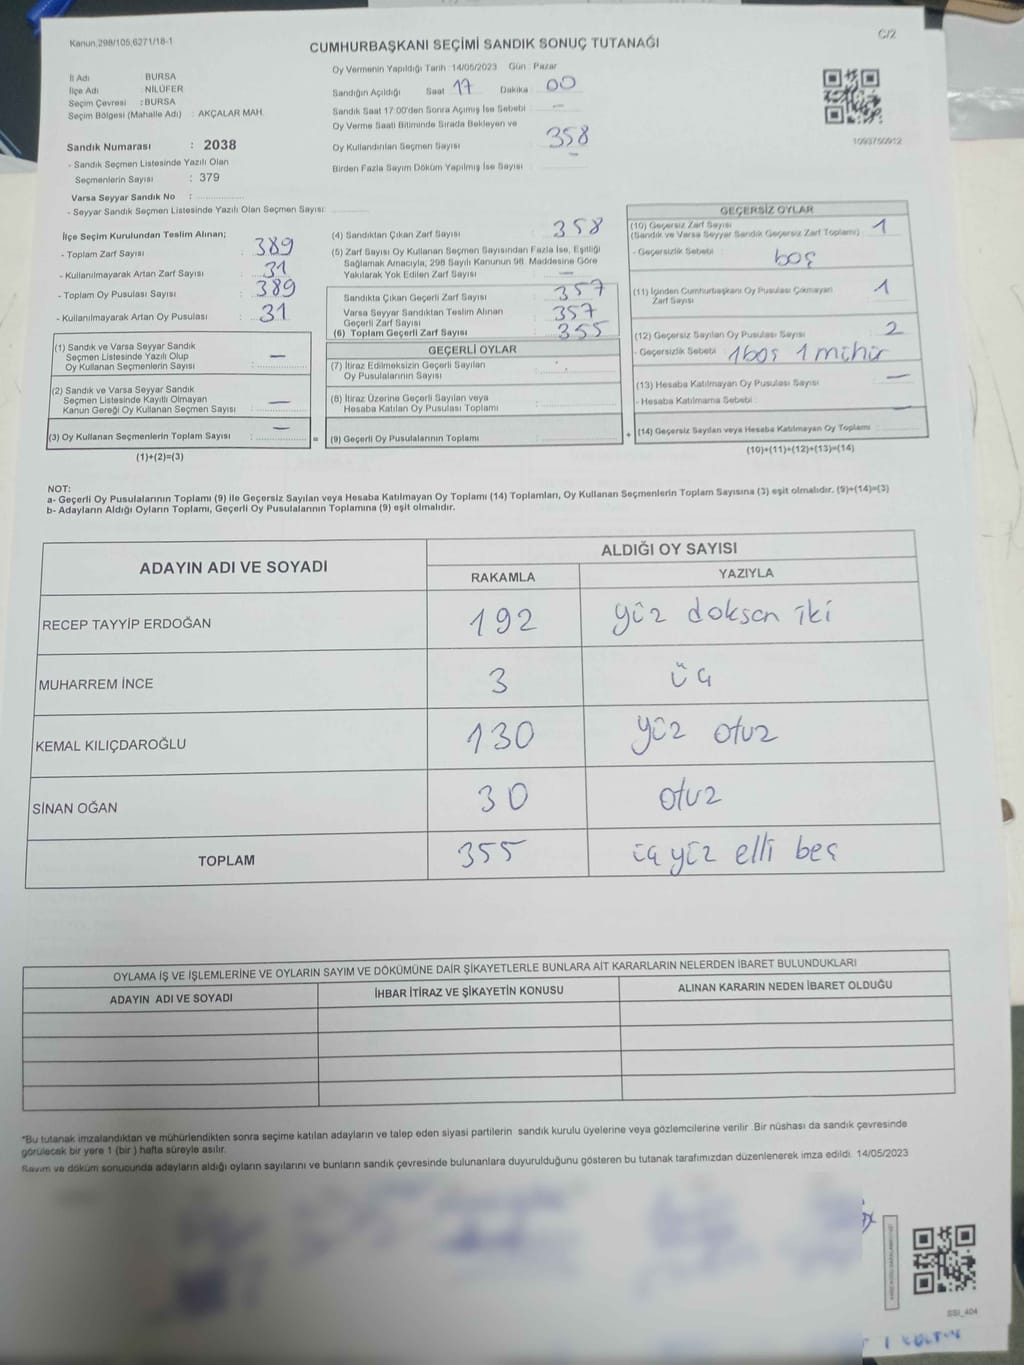 Kanun,298/105,6271/18-1
C/2
CUMHURBAŞKANI SEÇİMİ SANDIK SONUÇ TUTANAĞI
İl Adı : BURSA
İlçe Adı : NİLÜFER
Seçim Çevresi : BURSA
Seçim Bölgesi (Mahalle Adı) : AKÇALAR MAH.
Sandık Numarası : 2038
- Sandık Seçmen Listesinde Yazılı Olan
Seçmenlerin Sayısı : 379
Varsa Seyyar Sandık No :
- Seyyar Sandık Seçmen Listesinde Yazılı Olan Seçmen Sayısı:
Oy Vermenin Yapıldığı Tarih : 14/05/2023 Gün : Pazar
Sandığın Açıldığı Saat 17 Dakika : 00
Sandık Saat 17:00'den Sonra Açımış İse Sebebi : —
Oy Verme Saati Bitiminde Sırada Bekleyen ve
Oy Kullandırılan Seçmen Sayısı : 358
Birden Fazla Sayım Döküm Yapılmış İse Sayısı : —
1093750912
İlçe Seçim Kurulundan Teslim Alınan;
- Toplam Zarf Sayısı : 389
- Kullanılmayarak Artan Zarf Sayısı : 31
- Toplam Oy Pusulası Sayısı : 389
- Kullanılmayarak Artan Oy Pusulası : 31
(1) Sandık ve Varsa Seyyar Sandık
Seçmen Listesinde Yazılı Olup
Oy Kullanan Seçmenlerin Sayısı : —
(2) Sandık ve Varsa Seyyar Sandık
Seçmen Listesinde Kayıtlı Olmayan
Kanun Gereği Oy Kullanan Seçmen Sayısı : —
(3) Oy Kullanan Seçmenlerin Toplam Sayısı : —
(1)+(2)=(3)
(4) Sandıktan Çıkan Zarf Sayısı : 358
(5) Zarf Sayısı Oy Kullanan Seçmen Sayısından Fazla İse, Eşitliği
Sağlamak Amacıyla, 298 Sayılı Kanunun 98. Maddesine Göre
Yakılarak Yok Edilen Zarf Sayısı : —
Sandıkta Çıkan Geçerli Zarf Sayısı : 357
Varsa Seyyar Sandıktan Teslim Alınan
Geçerli Zarf Sayısı : 357
(6) Toplam Geçerli Zarf Sayısı : 355
GEÇERLİ OYLAR
(7) İtiraz Edilmeksizin Geçerli Sayılan
Oy Pusulalarının Sayısı :
(8) İtiraz Üzerine Geçerli Sayılan veya
Hesaba Katılan Oy Pusulası Toplamı :
= (9) Geçerli Oy Pusulalarının Toplamı :
GEÇERSİZ OYLAR
(10) Geçersiz Zarf Sayısı
(Sandık ve Varsa Seyyar Sandık Geçersiz Zarf Toplamı) : 1
- Geçersizlik Sebebi : boş
(11) İçinden Cumhurbaşkanı Oy Pusulası Çıkmayan
Zarf Sayısı : 1
(12) Geçersiz Sayılan Oy Pusulası Sayısı : 2
- Geçersizlik Sebebi : 1 boş 1 mühür
(13) Hesaba Katılmayan Oy Pusulası Sayısı : —
- Hesaba Katılmama Sebebi : —
+ (14) Geçersiz Sayılan veya Hesaba Katılmayan Oy Toplamı :
(10)+(11)+(12)+(13)=(14)
NOT:
a- Geçerli Oy Pusulalarının Toplamı (9) ile Geçersiz Sayılan veya Hesaba Katılmayan Oy Toplamı (14) Toplamları, Oy Kullanan Seçmenlerin Toplam Sayısına (3) eşit olmalıdır. (9)+(14)=(3)
b- Adayların Aldığı Oyların Toplamı, Geçerli Oy Pusulalarının Toplamına (9) eşit olmalıdır.
ADAYIN ADI VE SOYADI
ALDIĞI OY SAYISI
RAKAMLA YAZIYLA
RECEP TAYYİP ERDOĞAN 192 yüz doksan iki
MUHARREM İNCE 3 üç
KEMAL KILIÇDAROĞLU 130 yüz otuz
SİNAN OĞAN 30 otuz
TOPLAM 355 üç yüz elli beş
OYLAMA İŞ VE İŞLEMLERİNE VE OYLARIN SAYIM VE DÖKÜMÜNE DAİR ŞİKAYETLERLE BUNLARA AİT KARARLARIN NELERDEN İBARET BULUNDUKLARI
ADAYIN ADI VE SOYADI İHBAR İTİRAZ VE ŞİKAYETİN KONUSU ALINAN KARARIN NEDEN İBARET OLDUĞU
*Bu tutanak imzalandıktan ve mühürlendikten sonra seçime katılan adayların ve talep eden siyasi partilerin sandık kurulu üyelerine veya gözlemcilerine verilir .Bir nüshası da sandık çevresinde
görülecek bir yere 1 (bir ) hafta süreyle asılır.
Sayım ve döküm sonucunda adayların aldığı oyların sayılarını ve bunların sandık çevresinde bulunanlara duyurulduğunu gösteren bu tutanak tarafımızdan düzenlenerek imza edildi. 14/05/2023
SSI_404